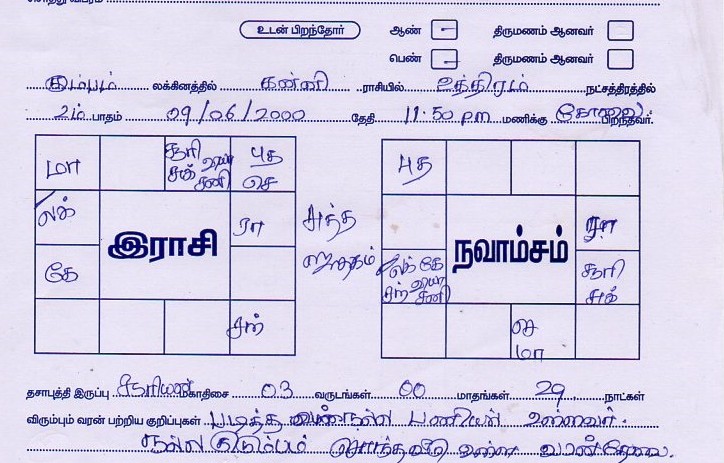 சொத்து விபரம்
உடன் பிறந்தோர் ஆண் - திருமணம் ஆனவர்
பெண் - திருமணம் ஆனவர்
கும்பம் லக்கினத்தில் கன்னி ராசியில் உத்திரம் நட்சத்திரத்தில்
2ம் பாதம் 09/06/2000 தேதி 11:50 pm மணிக்கு கோவை பிறந்தவர்.
மா சூரி சுக் வியா சனி புத செ
லக் ரா
கே
சந்
இராசி
சுத்த ஜாதகம்
புத
ரா
லக் கே சந் வியா சனி சூரி சுக்
செ மா
நவாம்சம்
தசாபுத்தி இருப்பு சூரியன் மகாதிசை 03 வருடங்கள் 00 மாதங்கள் 29 நாட்கள்
விரும்பும் வரன் பற்றிய குறிப்புகள் படித்த நல்ல பணியில் உள்ளவர்.
நல்ல குடும்பம் சொந்தவீடு உள்ள வரன் தேவை.